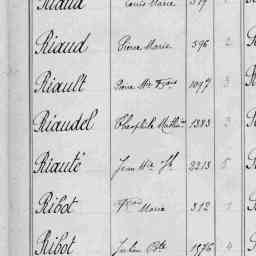 Riaud Louis Marie 319
Riaud Pierre Marie 596 2
Riault Pierre Mie Fçois 1097 3
Riaudel Théophile Mathin 1383 3
Riauté Jean Mie Jh 2213 5
Ribot Fçois Marie 312 1
Ribot Julien Bte 1576 4